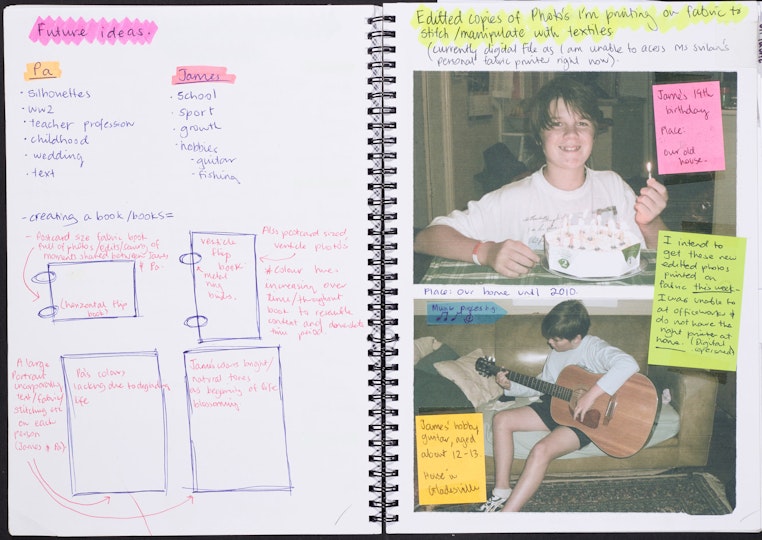 Future ideas.
Pa
· silhouettes
· ww2
· teacher profession
· childhood
· wedding
· text
James
· School
· Sport
· growth
· hobbies
· guitar
· fishing
- creating a book/books =
- Postcard size fabric book
full of photos/edits/sewing of
moments shared between James
& Pa.
(horizontal flip
book)
verticle
flip
book
metal
ring
binds.
Also postcard sized,
verticle photos
* Colour hues
increasing over
time/throughout
book to resemble
context and
time period.
A large
Portrait
incorporating
text/fabric/
stitching etc
on each
person
(James & Pa)
Pa's colours
lacking due to
life
James' colours bright/
natural tones
as beginning of life
blossoming
Editted copies of Photo's I'm printing on fabric to
stitch/manipulate with textiles
(currently digital file as I am unable to acess Ms
personal fabric printer right now).
James 14th
birthday
Place:
our old
house.
Place: our home until 2010.
I intend to
get these new
editted photos
printed on
fabric this week-
I was unable to
at officeworks &
do not have the
right printer at
home. (Digital
Music passing
James' hobby,
guitar, aged
about 12-13.
House in
Gladesville